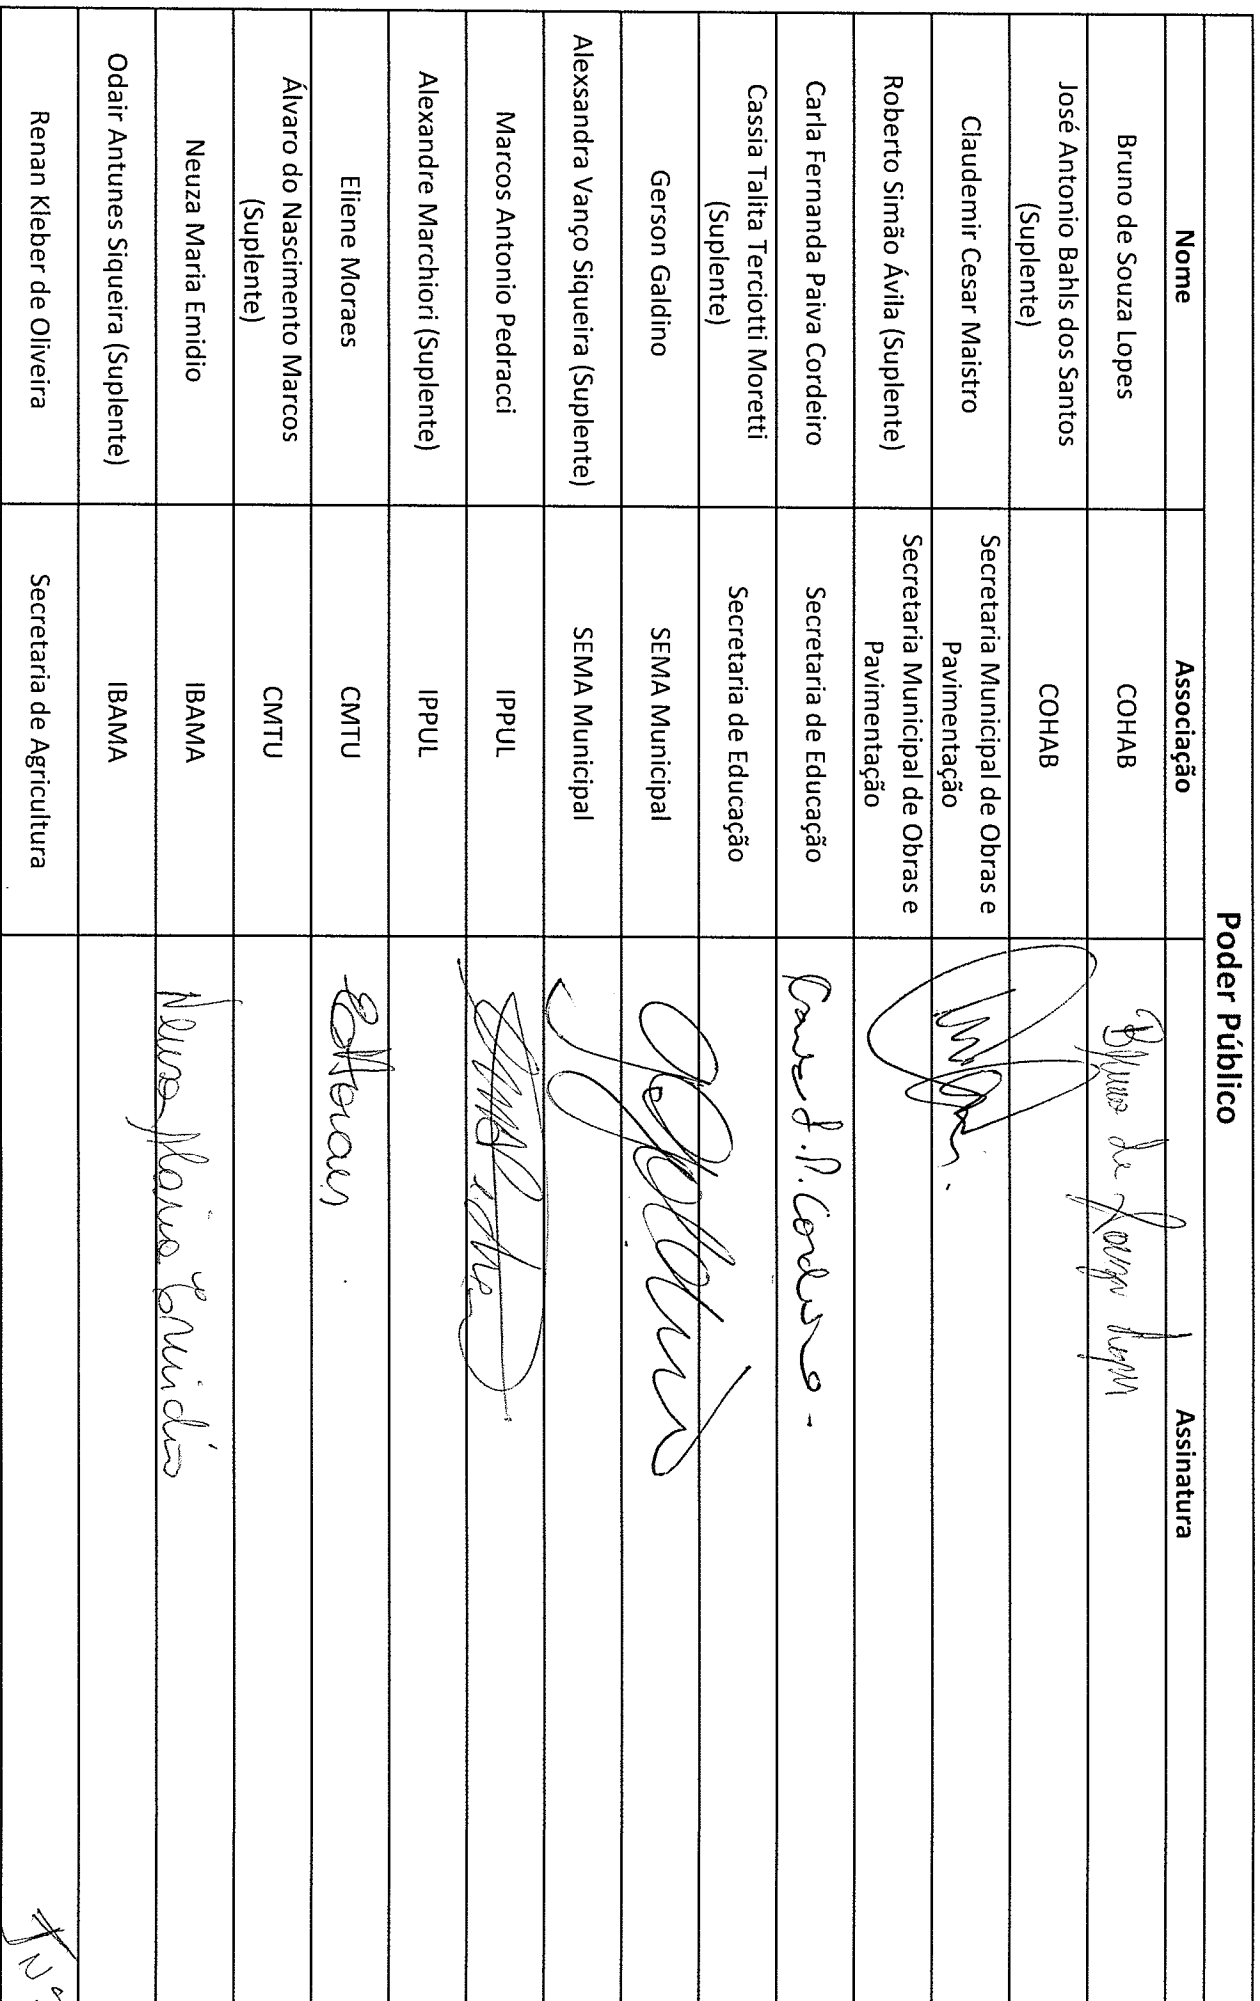 Poder Público
Nome Associação Assinatura
Bruno de Souza Lopes COHAB Bruno de Souza Lopes
José Antonio Bahls dos Santos
(Suplente) COHAB
Claudemir Cesar Maistro Secretaria Municipal de Obras e
Pavimentação
Roberto Simão Ávila (Suplente) Secretaria Municipal de Obras e
Pavimentação
Carla Fernanda Paiva Cordeiro Secretaria de Educação Carla F. P. Cordeiro -
Cassia Talita Terciotti Moretti
(Suplente) Secretaria de Educação
Gerson Galdino SEMA Municipal
Alexsandra Vanço Siqueira (Suplente) SEMA Municipal
Marcos Antonio Pedracci IPPUL
Alexandre Marchiori (Suplente) IPPUL
Eliene Moraes CMTU EMoraes
Álvaro do Nascimento Marcos
(Suplente) CMTU
Neuza Maria Emidio IBAMA Neuza Maria Emidio
Odair Antunes Siqueira (Suplente) IBAMA
Renan Kleber de Oliveira Secretaria de Agricultura